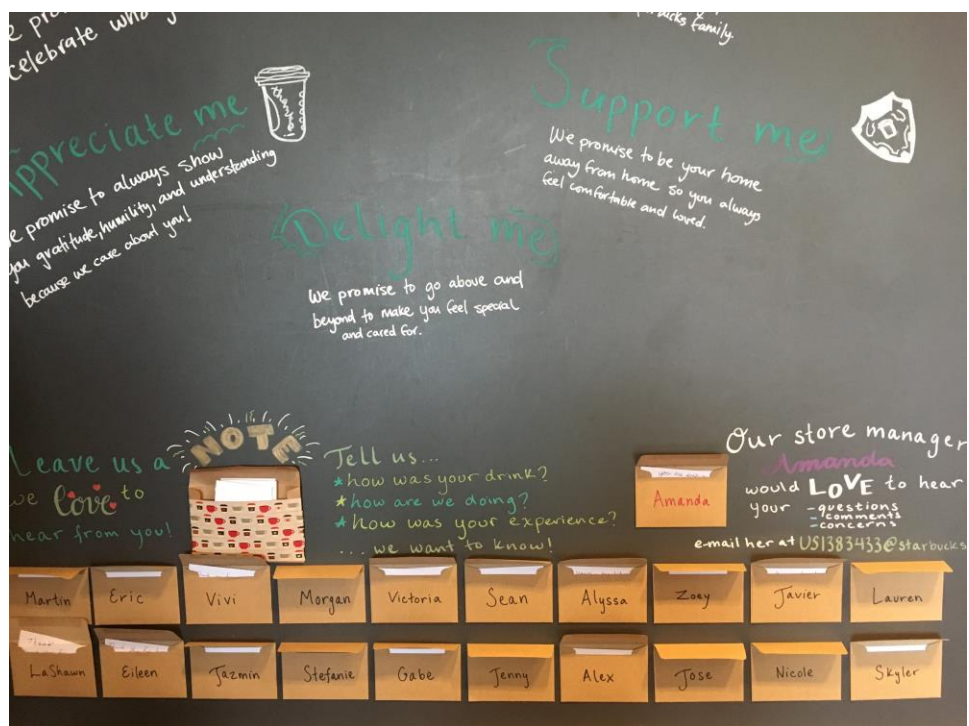 celebrate who
family.
Appreciate me
promise to always show
you gratitude, humility, and understanding
because we care about you!
Support me
We promise to be your home
away from home so you always
feel comfortable and loved.
Delight me
We promise to go above and
beyond to make you feel special
and cared for.
Leave us a
NOTE
we Love to
hear from you!
Tell us...
*how was your drink?
*how are we doing?
*How was your experience?
... we want to know!
Amanda
Our store manager
Amanda
would LOVE to hear
your -questions
-comments
-concerns
e-mail her at US1383433@starbucks
Martin
Eric
Vivi
Morgan
Victoria
Sean
Alyssa
Zoey
Javier
Lauren
LaShawn
Eileen
Jazmin
Stefanie
Gabe
Jenny
Alex
Jose
Nicole
Skyler